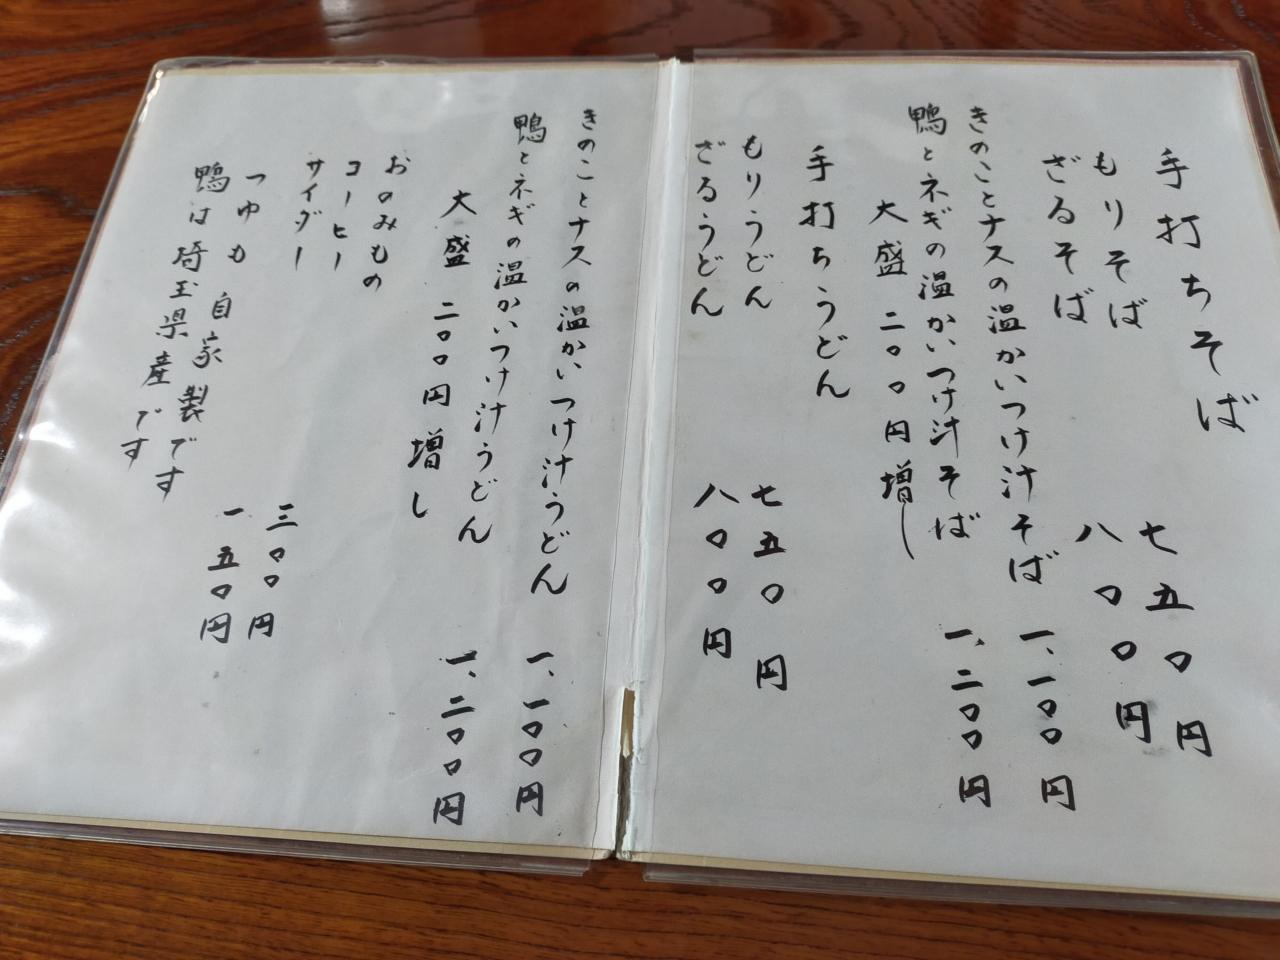 手打ちそば
もりそば 七五〇円
ざるそば 八〇〇円
きのことナスの温かいつけ汁そば 一、一〇〇円
鴨とネギの温かいつけ汁そば 一、二〇〇円
大盛 二〇〇円増し
手打ちうどん
もりうどん 七五〇円
ざるうどん 八〇〇円
きのことナスの温かいつけ汁うどん 一、一〇〇円
鴨とネギの温かいつけ汁うどん 一、二〇〇円
大盛 二〇〇円増し
おのみもの
コーヒー 三〇〇円
サイダー 一五〇円
つゆも自家製です
鴨は埼玉県産です